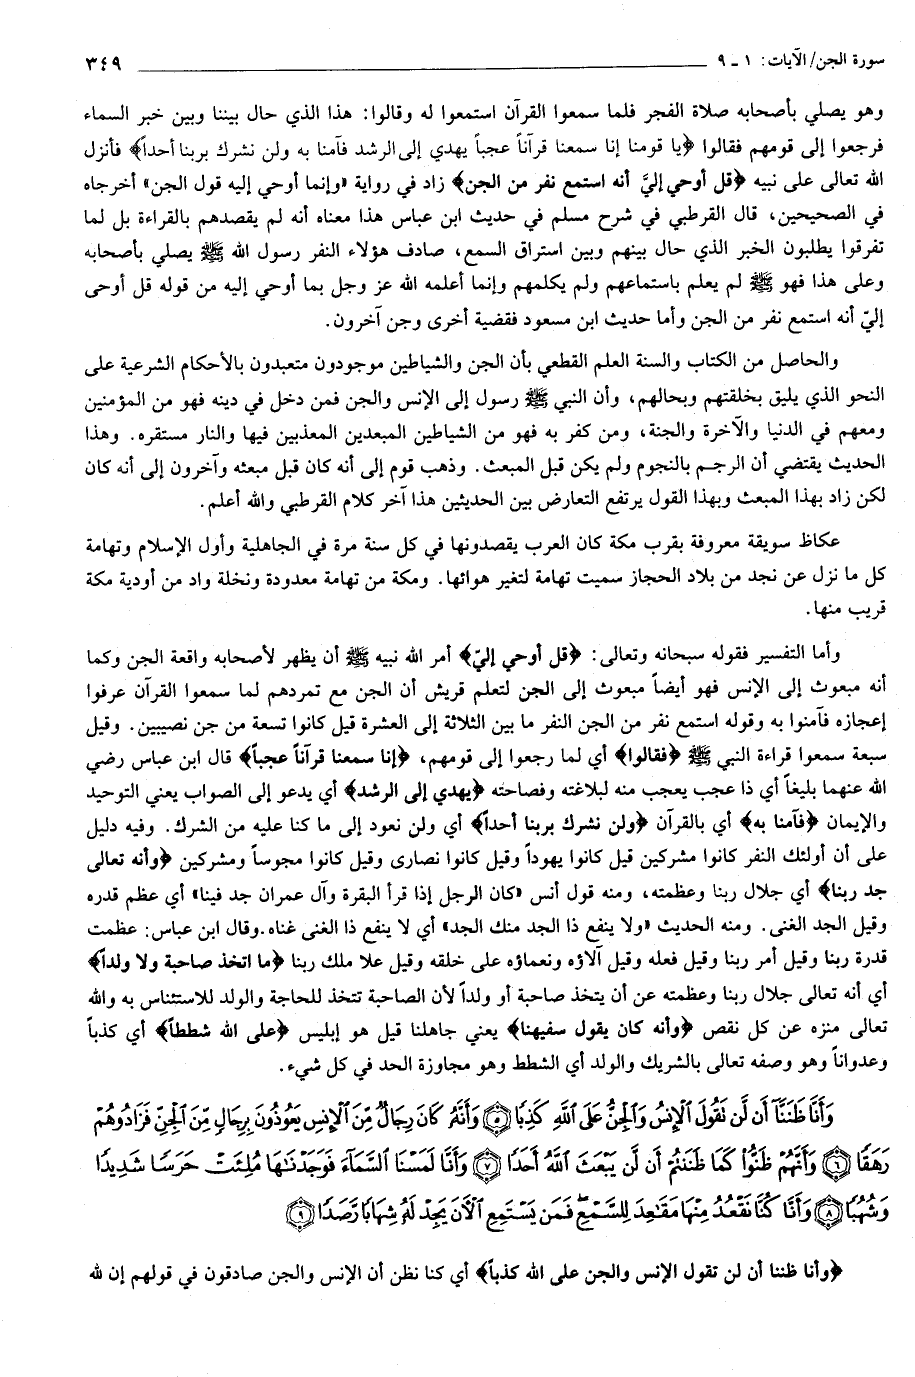 سورة الجن/ الآيات: ١ ـ ٩ ٣٤٩
وهو يصلي بأصحابه صلاة الفجر فلما سمعوا القرآن استمعوا له وقالوا: هذا الذي حال بيننا وبين خبر السماء
فرجعوا إلى قومهم فقالوا ﴿يا قومنا إنا سمعنا قرآناً عجباً يهدي إلى الرشد فآمنا به ولن نشرك بربنا أحداً﴾ فأنزل
الله تعالى على نبيه ﴿قل أوحي إليَّ أنه استمع نفر من الجن﴾ زاد في رواية «وإنما أوحي إليه قول الجن» أخرجاه
في الصحيحين، قال القرطبي في شرح مسلم في حديث ابن عباس هذا معناه أنه لم يقصدهم بالقراءة بل لما
تفرقوا يطلبون الخبر الذي حال بينهم وبين استراق السمع، صادف هؤلاء النفر رسول الله ﷺ يصلي بأصحابه
وعلى هذا فهو ﷺ لم يعلم باستماعهم ولم يكلمهم وإنما أعلمه الله عز وجل بما أوحي إليه من قوله قل أوحى
إليّ أنه استمع نفر من الجن وأما حديث ابن مسعود فقضية أخرى وجن آخرون.
والحاصل من الكتاب والسنة العلم القطعي بأن الجن والشياطين موجودون متعبدون بالأحكام الشرعية على
النحو الذي يليق بخلقتهم وبحالهم، وأن النبي ﷺ رسول إلى الإنس والجن فمن دخل في دينه فهو من المؤمنين
ومعهم في الدنيا والآخرة والجنة، ومن كفر به فهو من الشياطين المبعدين المعذبين فيها والنار مستقره. وهذا
الحديث يقتضي أن الرجم بالنجوم ولم يكن قبل المبعث. وذهب قوم إلى أنه كان قبل مبعثه وآخرون إلى أنه كان
لكن زاد بهذا المبعث وبهذا القول يرتفع التعارض بين الحديثين هذا آخر كلام القرطبي والله أعلم.
عكاظ سويقة معروفة بقرب مكة كان العرب يقصدونها في كل سنة مرة في الجاهلية وأول الإسلام وتهامة
كل ما نزل عن نجد من بلاد الحجاز سميت تهامة لتغير هوائها. ومكة من تهامة معدودة ونخلة واد من أودية مكة
قريب منها.
وأما التفسير فقوله سبحانه وتعالى: ﴿قل أوحي إليّ﴾ أمر الله نبيه ﷺ أن يظهر لأصحابه واقعة الجن وكما
أنه مبعوث إلى الإنس فهو أيضاً مبعوث إلى الجن لتعلم قريش أن الجن مع تمردهم لما سمعوا القرآن عرفوا
إعجازه فآمنوا به وقوله استمع نفر من الجن النفر ما بين الثلاثة إلى العشرة قيل كانوا تسعة من جن نصيبين. وقيل
سبعة سمعوا قراءة النبي ﷺ ﴿فقالوا﴾ أي لما رجعوا إلى قومهم، ﴿إنا سمعنا قرآناً عجباً﴾ قال ابن عباس رضي
الله عنهما بليغاً أي ذا عجب يعجب منه لبلاغته وفصاحته ﴿يهدي إلى الرشد﴾ أي يدعو إلى الصواب يعني التوحيد
والإيمان ﴿فآمنا به﴾ أي بالقرآن ﴿ولن نشرك بربنا أحداً﴾ أي ولن نعود إلى ما كنا عليه من الشرك. وفيه دليل
على أن أولئك النفر كانوا مشركين قيل كانوا يهوداً وقيل كانوا نصارى وقيل كانوا مجوساً ومشركين ﴿وأنه تعالى
جد ربنا﴾ أي جلال ربنا وعظمته، ومنه قول أنس «كان الرجل إذا قرأ البقرة وآل عمران جد فينا» أي عظم قدره
وقيل الجد الغنى. ومنه الحديث «ولا ينفع ذا الجد منك الجد» أي لا ينفع ذا الغنى غناه.وقال ابن عباس: عظمت
قدرة ربنا وقيل أمر ربنا وقيل فعله وقيل آلاؤه ونعماؤه على خلقه وقيل علا ملك ربنا ﴿ما اتخذ صاحبة ولا ولداً﴾
أي أنه تعالى جلال ربنا وعظمته عن أن يتخذ صاحبة أو ولداً لأن الصاحبة تتخذ للحاجة والولد للاستئناس به والله
تعالى منزه عن كل نقص ﴿وأنه كان يقول سفيهنا﴾ يعني جاهلنا قيل هو إبليس ﴿على الله شططاً﴾ أي كذباً
وعدواناً وهو وصفه تعالى بالشريك والولد أي الشطط وهو مجاوزة الحد في كل شيء.
وَأَنَّا ظَنَنَّآ أَن لَّن تَقُولَ ٱلْإِنسُ وَٱلْجِنُّ عَلَى ٱللَّهِ كَذِبًا ۝٥ وَأَنَّهُۥ كَانَ رِجَالٌ مِّنَ ٱلْإِنسِ يَعُوذُونَ بِرِجَالٍ مِّنَ ٱلْجِنِّ فَزَادُوهُمْ
رَهَقًا ۝٦ وَأَنَّهُمْ ظَنُّواْ كَمَا ظَنَنتُمْ أَن لَّن يَبْعَثَ ٱللَّهُ أَحَدًا ۝٧ وَأَنَّا لَمَسْنَا ٱلسَّمَآءَ فَوَجَدْنَٰهَا مُلِئَتْ حَرَسًا شَدِيدًا
وَشُهُبًا ۝٨ وَأَنَّا كُنَّا نَقْعُدُ مِنْهَا مَقَٰعِدَ لِلسَّمْعِ ۖ فَمَن يَسْتَمِعِ ٱلْآنَ يَجِدْ لَهُۥ شِهَابًا رَّصَدًا ۝٩
﴿وأنا ظننا أن لن تقول الإنس والجن على الله كذباً﴾ أي كنا نظن أن الإنس والجن صادقون في قولهم إن لله